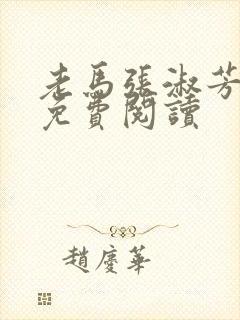 老馬張淑芳
免費閱讀
趙慶華